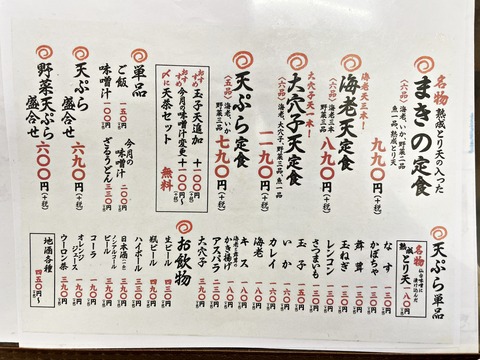 名物 熟成とり天の入った
まきの定食
(六品) 海老、いか、野菜二品
魚一品、熟成とり天
九九〇円(+税)
海老天三本!
海老天定食
(六品) 海老三本
野菜三品
八九〇円(+税)
大穴子天一本!
大穴子天定食
(六品) 海老、大穴子、野菜三品、魚一品
一、一九〇円(+税)
天ぷら定食
(五品) 海老、いか
野菜三品
七九〇円(+税)
おすすめ 玉子天追加 +一〇〇円
おすすめ 今月の味噌汁変更 +一〇〇円~
〆に 天茶セット 無料
単品
ご飯 一五〇円
味噌汁 一〇〇円
今月の味噌汁 二〇〇円
ざるうどん 三三〇円
天ぷら盛合せ
六九〇円(+税)
野菜天ぷら盛合せ
六〇〇円(+税)
天ぷら単品
名物 熟成とり天
一八〇円
なす 一三〇円
かぼちゃ 一三〇円
舞茸 一三〇円
玉ねぎ 一三〇円
レンコン 一三〇円
さつまいも 一三〇円
玉子
いか 一五〇円
カレイ 一六〇円
海老 一八〇円
キス 一八〇円
かき揚げ
アスパラ
大穴子 三九〇円
お飲物
生ビール 四三〇円
瓶ビール 四九〇円
ハイボール 三九〇円
日本酒(一合)
ノンアルコールビール
コーラ
オレンジジュース
ウーロン茶
地酒各種
四五〇円~